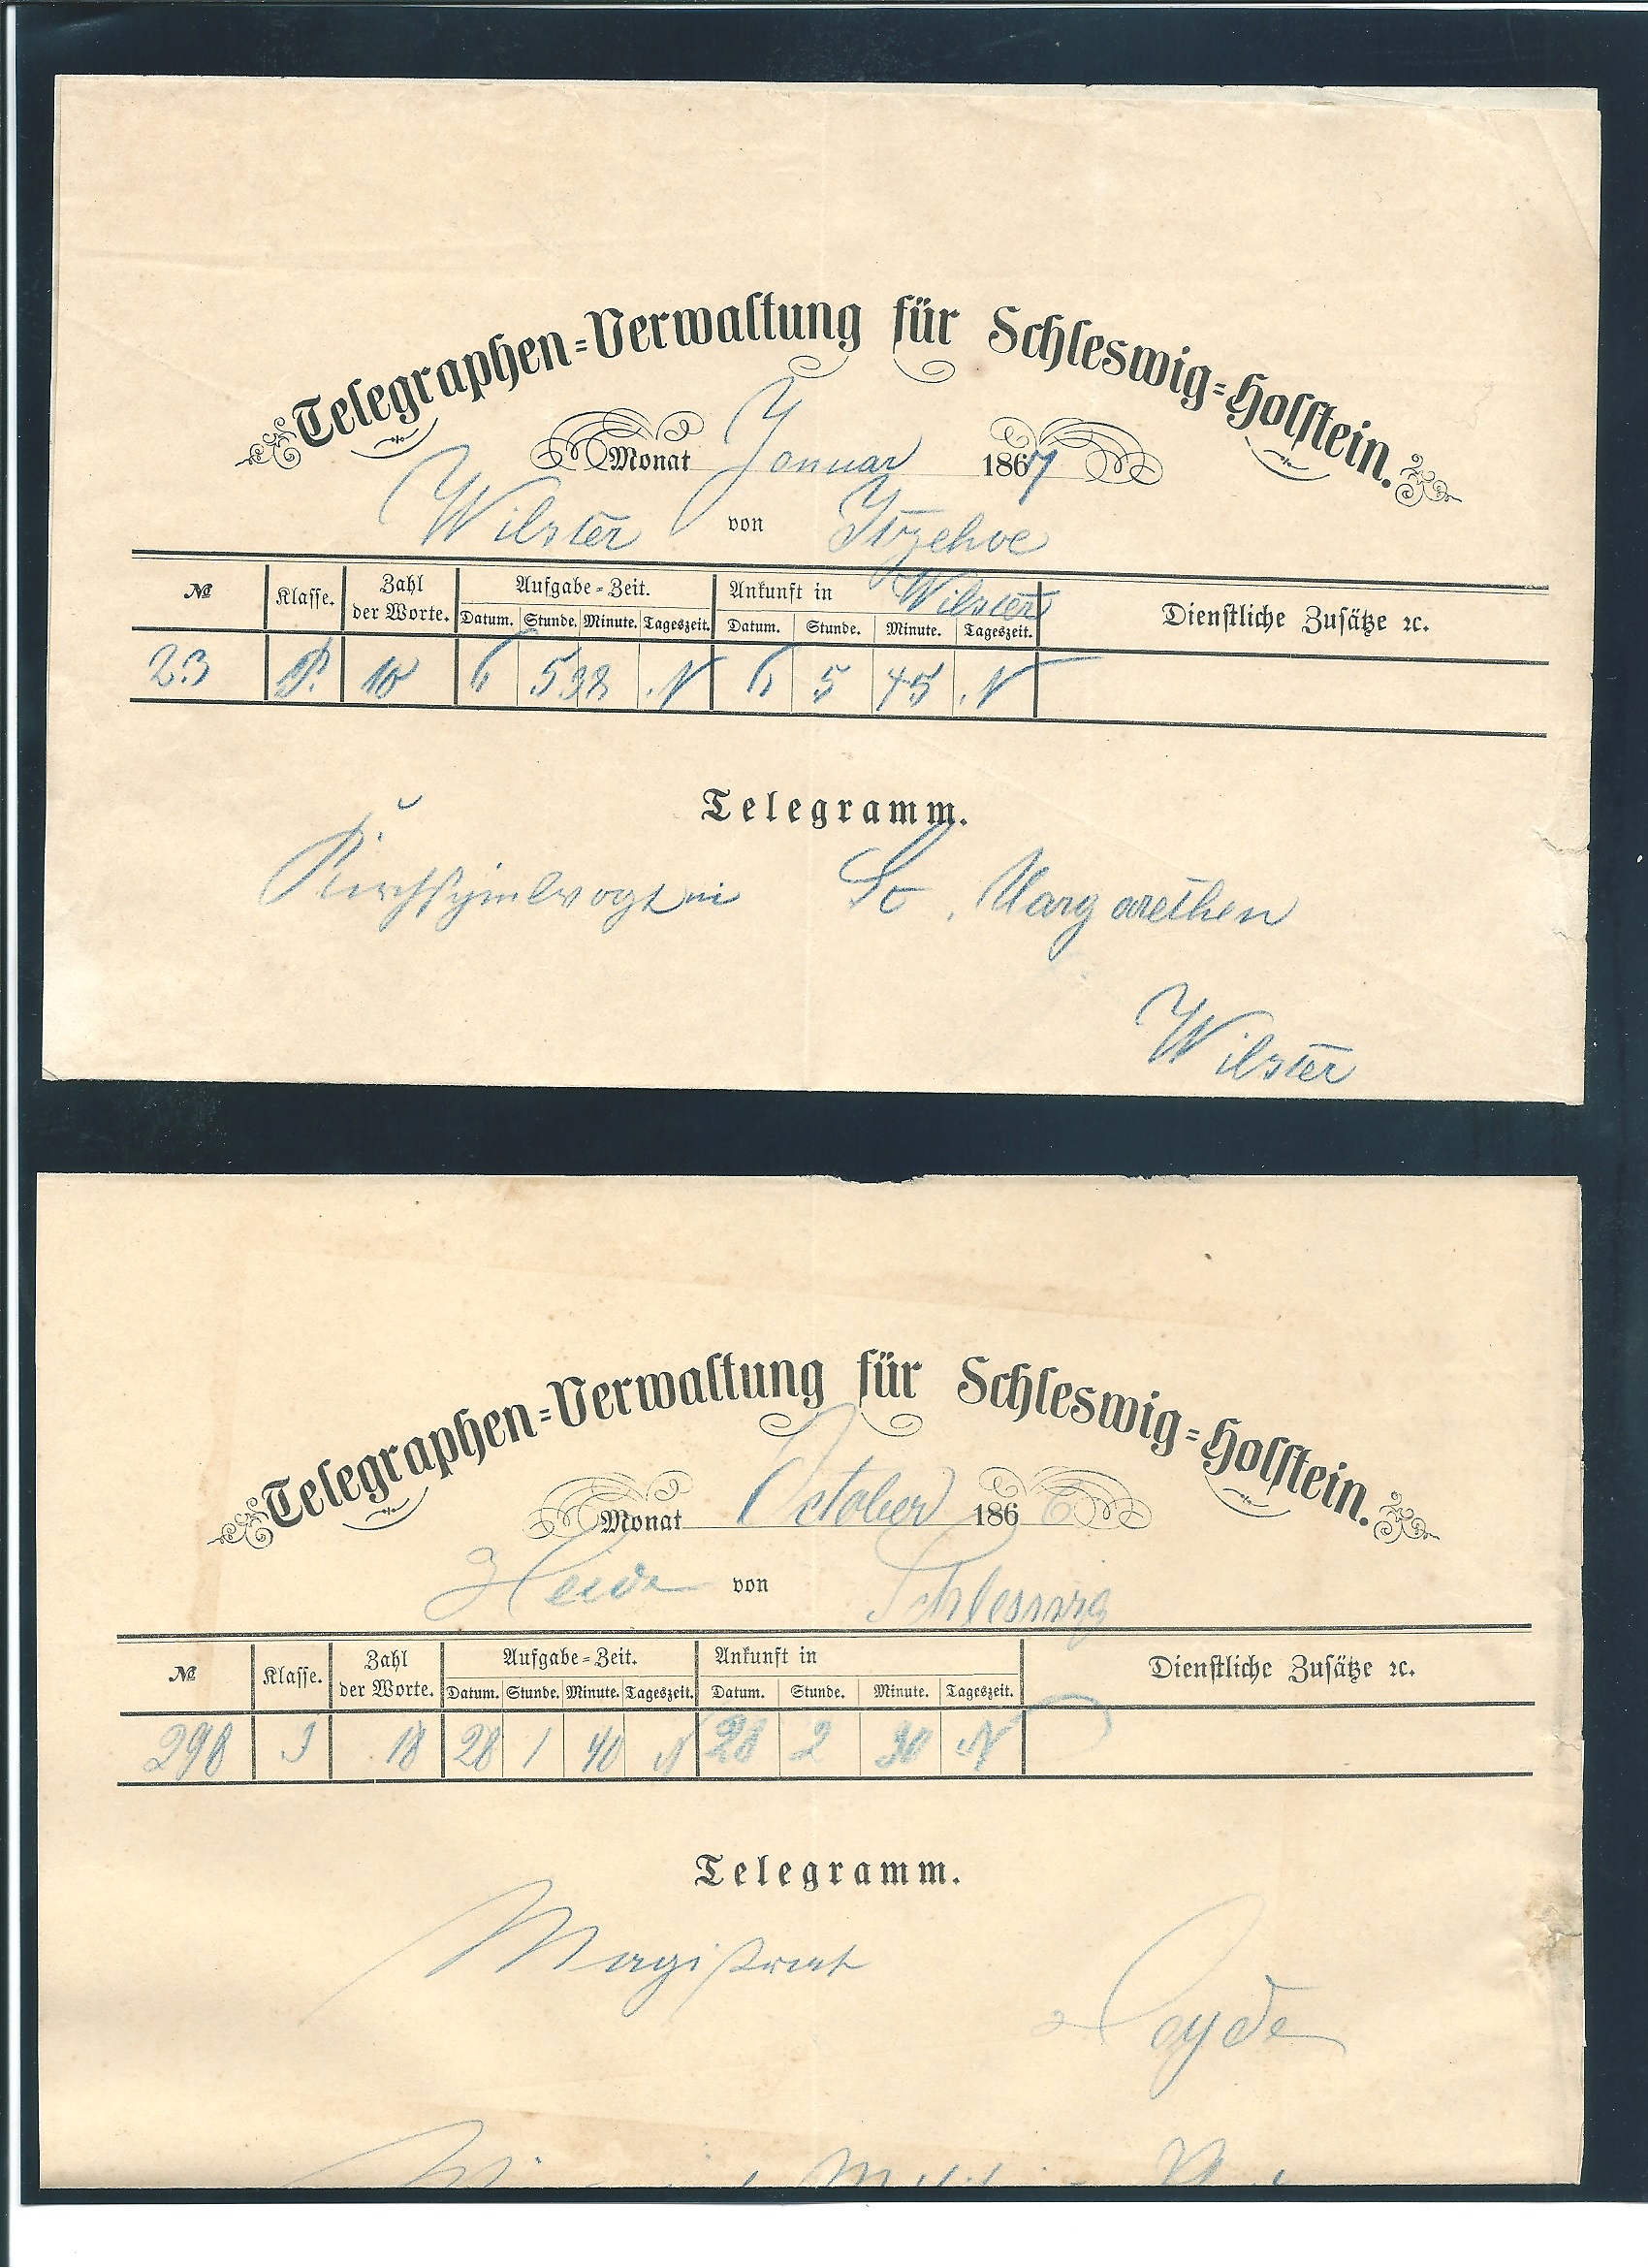 Telegraphen=Verwaltung für Schleswig=Holstein.
Monat Januar 1867
Wilster von Itzehoe
№ Klasse. Zahl der Worte. Aufgabe=Zeit. Ankunft in Wilster Dienstliche Zusätze ꝛc.
Datum. Stunde. Minute. Tageszeit. Datum. Stunde. Minute. Tageszeit.
23 P. 10 6 5 38 N 6 5 45 N
Telegramm.
Kirchspielvogtei St. Margarethen
Wilster
Telegraphen=Verwaltung für Schleswig=Holstein.
Monat October 1866
Heide von Schleswig
№ Klasse. Zahl der Worte. Aufgabe=Zeit. Ankunft in Dienstliche Zusätze ꝛc.
Datum. Stunde. Minute. Tageszeit. Datum. Stunde. Minute. Tageszeit.
298 18 28 1 40 N 28 2 30 N
Telegramm.
Magistrat